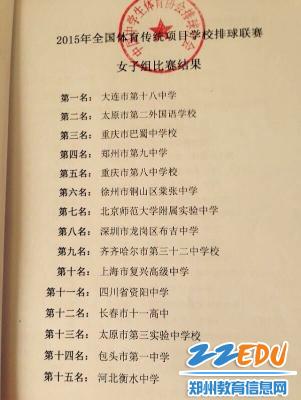 中国中学生体育协会排球分会
2015年全国体育传统项目学校排球联赛
女子组比赛结果
第一名：大连市第十八中学
第二名：太原市第二外国语学校
第三名：重庆市巴蜀中学校
第四名：郑州市第九中学
第五名：重庆市第八中学校
第六名：徐州市铜山区棠张中学
第七名：北京师范大学附属实验中学
第八名：深圳市龙岗区布吉中学
第九名：齐齐哈尔市第三十二中学校
第十名：上海市复兴高级中学
第十一名：四川省资阳中学
第十二名：长春市十一高中
第十三名：太原市第三实验中学校
第十四名：包头市第一中学
第十五名：河北衡水中学
22EDU
郑州教育信息网